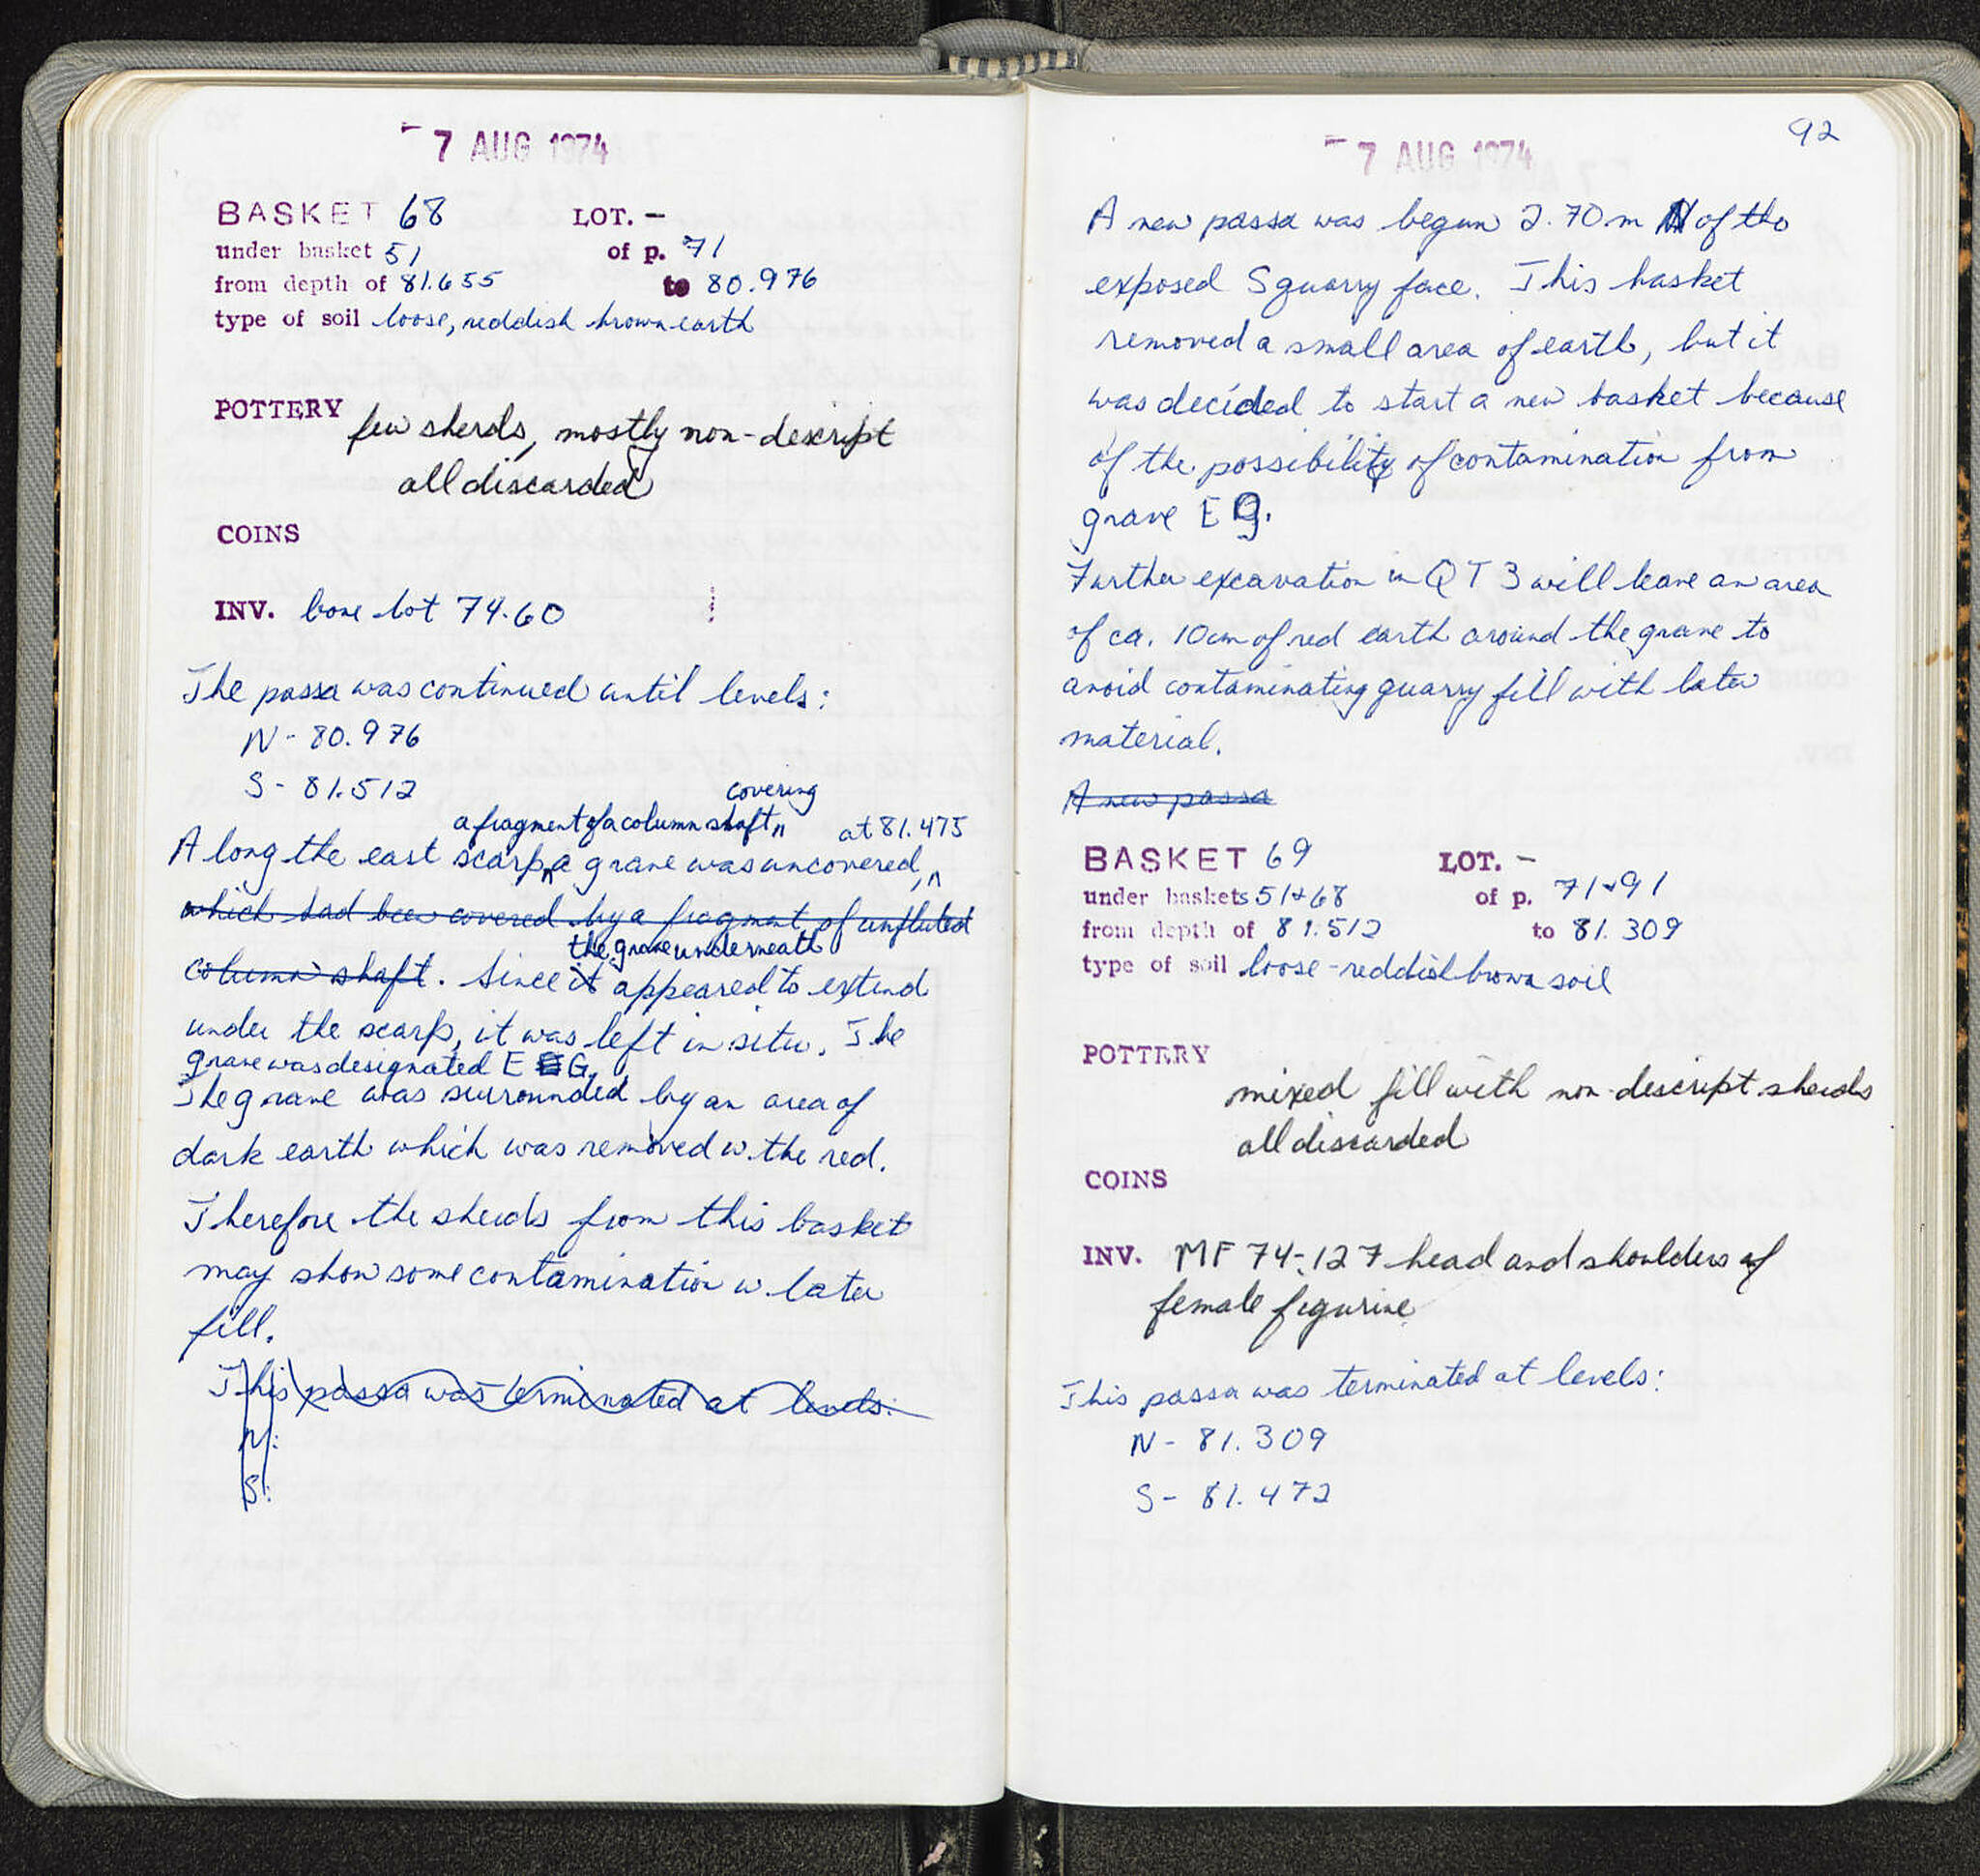 7 AUG 1974
BASKET 68 LOT. -
under basket 51 of p. 71
from depth of 81.655 to 80.976
type of soil loose, reddish brown earth
POTTERY few sherds, mostly non-descript
all discarded
COINS
INV. bone lot 74-60
The passa was continued until levels:
N - 80.976
S - 81.512
covering
a fragment of a column shaft at 81.475
Along the east scarp, a grave was uncovered,
which had been covered by a fragment of unfluted
the grave underneath
column shaft. Since it appeared to extend
under the scarp, it was left in situ. The
grave was designated E G.
The grave was surrounded by an area of
dark earth which was removed w. the red.
Therefore the sherds from this basket
may show some contamination w. later
fill.
This passa was terminated at levels:
N:
S:
92
7 AUG 1974
A new passa was begun 2.70 m N of the
exposed S quarry face. This basket
removed a small area of earth, but it
was decided to start a new basket because
of the possibility of contamination from
grave E G.
Further excavation in QT 3 will leave an area
of ca. 10cm of red earth around the grave to
avoid contaminating quarry fill with later
material.
A new passa
BASKET 69 LOT. -
under baskets 51+68 of p. 71+91
from depth of 81.512 to 81.309
type of soil loose-reddish brown soil
POTTERY
mixed fill with non-descript sherds
all discarded
COINS
INV. MF 74-127 head and shoulders of
female figurine
This passa was terminated at levels:
N - 81.309
S - 81.472